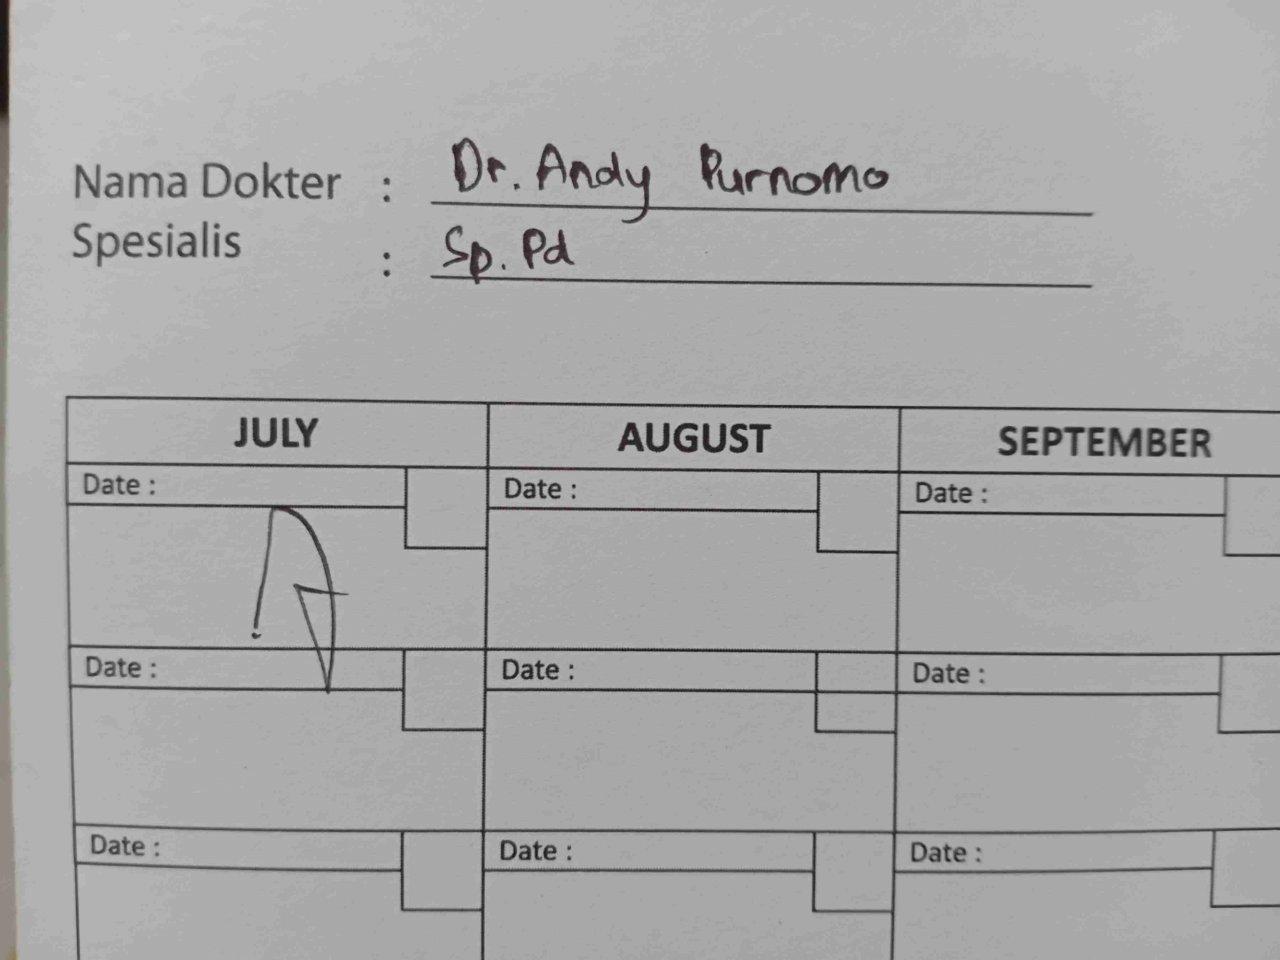 Nama Dokter : Dr. Andy Purnomo
Spesialis : Sp. Pd
JULY AUGUST SEPTEMBER
Date : Date : Date :
Date : Date : Date :
Date : Date : Date :